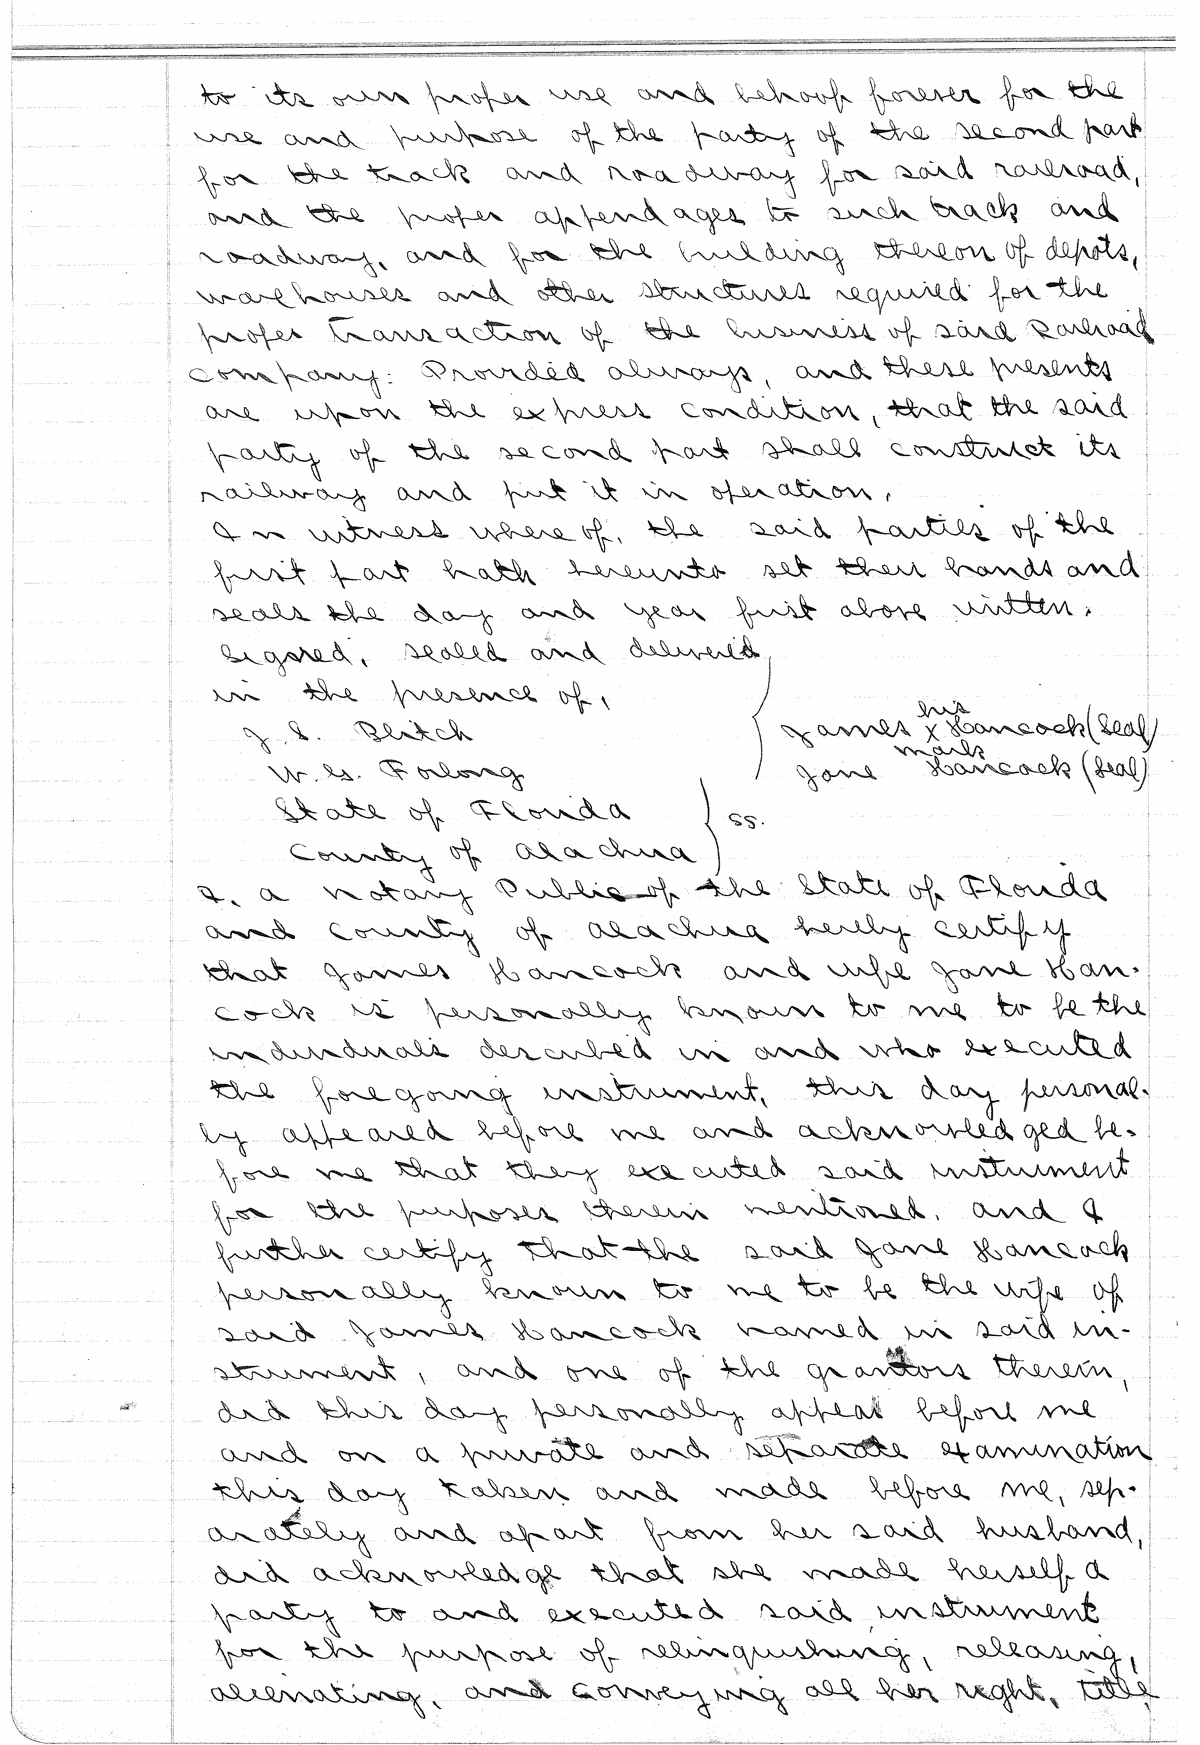 to its own proper use and behoof forever for the
use and purpose of the party of the second part
for the track and roadway for said railroad,
and the proper appendages to such track and
roadway, and for the building thereon of depots,
warehouses and other structures required for the
proper transaction of the business of said Railroad
company: Provided always, and these presents
are upon the express condition, that the said
party of the second part shall construct its
railway and put it in operation.
In witness where of, the said parties of the
first part hath hereunto set their hands and
seals the day and year first above written.
Signed, sealed and delivered
in the presence of,
his
J. S. Blitch James x Hancock (Seal)
mark
W. G. Forlong Jane Hancock (Seal)
State of Florida
ss.
County of Alachua
I, a Notary Public of the State of Florida
and County of Alachua hereby certify
that James Hancock and wife Jane Han-
cock is personally known to me to be the
individuals described in and who executed
the foregoing instrument, this day personal-
ly appeared before me and acknowledged be-
fore me that they executed said instrument
for the purposes therein mentioned, and I
further certify that the said Jane Hancock
personally known to me to be the wife of
said James Hancock named in said in-
strument, and one of the grantors therein,
did this day personally appear before me
and on a private and separate examination
this day taken and made before me, sep-
arately and apart from her said husband,
did acknowledge that she made herself a
party to and executed said instrument
for the purpose of relinquishing, releasing,
alienating, and conveying all her right, title